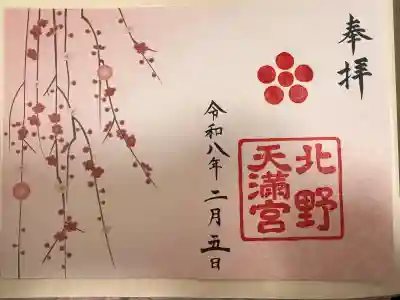 奉拝
北野
天満宮
令和八年 二月 五日